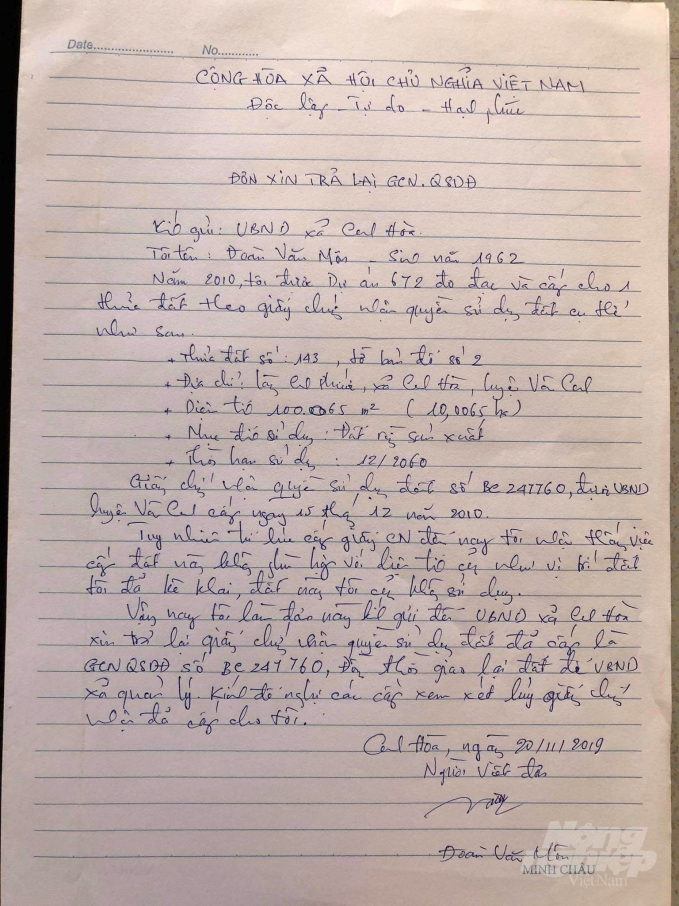 Date........................ No............
CỘNG HÒA XÃ HỘI CHỦ NGHĨA VIỆT NAM
Độc lập - Tự do - Hạnh phúc
ĐƠN XIN TRẢ LẠI GCN.QSDĐ
Kính gửi: UBND xã Canh Hòa.
Tôi tên: Đoàn Văn Môn - Sinh năm 1962
Năm 2010, tôi được Dự án 672 đo đạc và cấp cho 1
thửa đất theo giấy chứng nhận quyền sử dụng đất cụ thể
như sau.
+ Thửa đất số: 143, tờ bản đồ số 2
+ Địa chỉ: làng Canh Phước, xã Canh Hòa, huyện Vân Canh
+ Diện tích 100.065 m² (10,0065 ha)
+ Mục đích sử dụng: Đất rừng sản xuất
+ Thời hạn sử dụng: 12/2060
Giấy chứng nhận quyền sử dụng đất số BC 247760, được UBND
huyện Vân Canh cấp ngày 15 tháng 12 năm 2010.
Tuy nhiên từ lúc cấp giấy CN đến nay tôi nhận thấy việc
cấp đất này không phù hợp với diện tích củng như vị trí đất
tôi đả kê khai, đất này tôi củng không sử dụng.
Vậy nay tôi làm đơn này kính gửi đến UBND xã Canh Hòa
xin trả lại giấy chứng nhận quyền sử dụng đất đả cấp là
GCNQSDĐ số BC 247760, Đồng thời giao lại đất để UBND
xả quản lý. Kính đề nghị các cấp xem xét hủy giấy chứng
nhận đả cấp cho tôi.
Canh Hòa, ngày 20/11/2019
Người viết đơn
Đoàn Văn Môn
MINH CHÂU
Nông nghiệp
Việt Nam